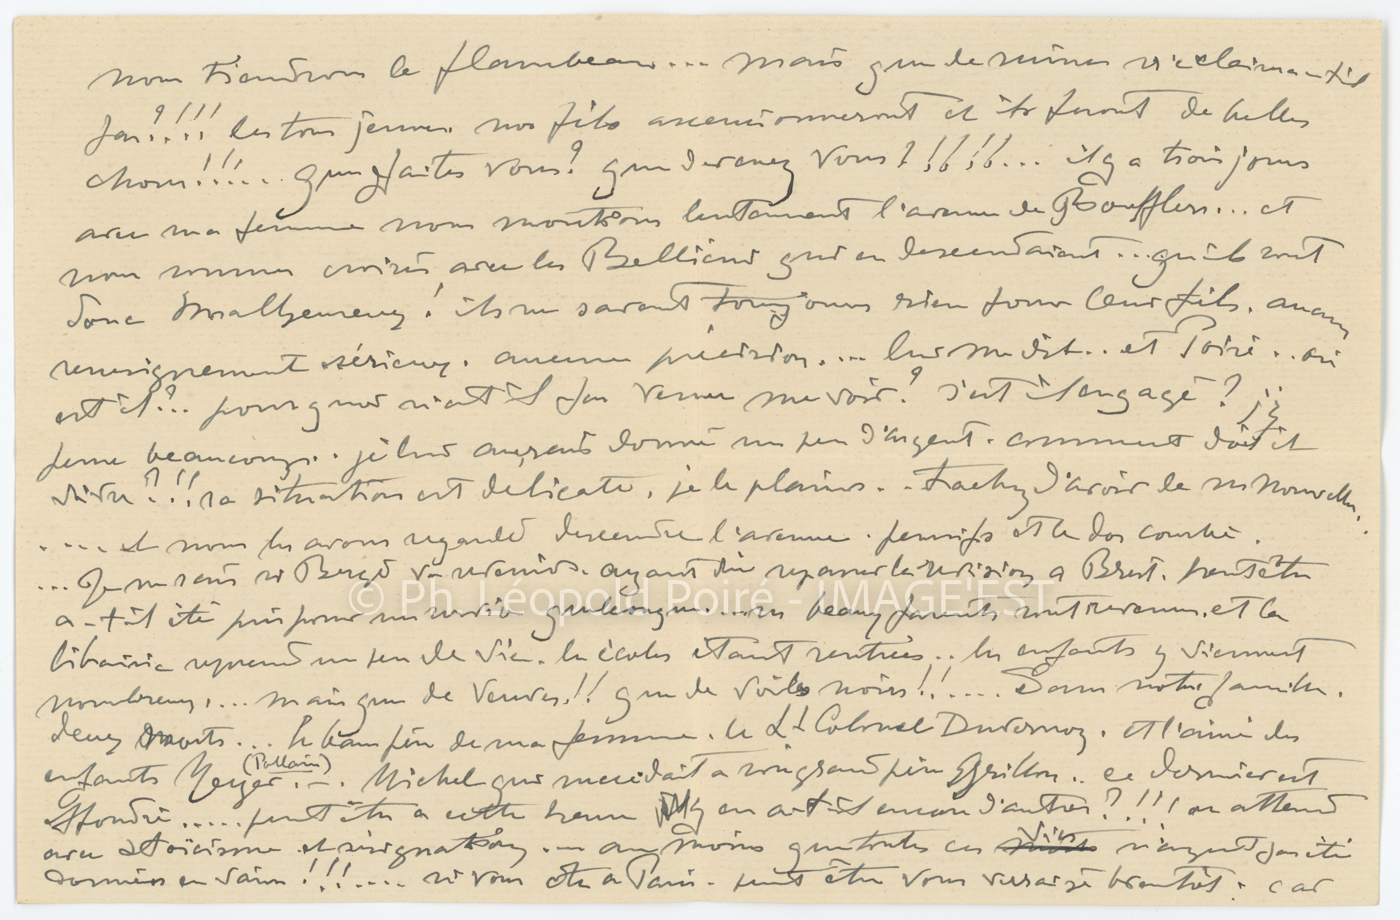 nous tiendrons le flambeau... mais que de ruines réclamera-t-il
pas?!!! les tous jeunes nos fils ascensionneront et ils feront de belles
choses!!!... que faites vous? que devenez vous?!!!!... il y a trois jours
avec ma femme nous montions lentement l'avenue de Boufflers... et
nous sommes croisés avec les Belliéni qui en descendaient... qu'ils sont
donc malheureux! ils ne savent toujours rien pour leur fils. aucun
renseignement sérieux. aucune précision.... lui me dit.. et Poiré.. où
est il?.. pourquoi n'est il pas venu me voir? s'est il engagé? j'y
pense beaucoup.. je lui aurais donné un peu d'argent. comment doit il
vivre?!! sa situation est délicate, je le plains.. Tachez d'avoir de ses nouvelles..
.... et nous les avons regardé descendre l'avenue. pensifs et le dos courbé.
... Je ne sais si Bergé va revenir. ayant dû repasser la révision à Brest. peut être
a-t-il été pris pour un service quelconque.... ses beaux parents sont revenus. et la
librairie reprend un peu de vie. les écoles étant rentrées.. les enfants y viennent
nombreux.... mais que de veuves!! que de voiles noirs!!.... Dans notre famille.
deux morts... le beau père de ma femme. le Lt Colonel Duvernoy. et l'aîné des
enfants Meyer (Pallain)... Michel qui succédait à son grand père Grillon.. ce dernier est
effondré..... peut être à cette heure y en a-t-il encore d'autres?!!! on attend
avec stoïcisme et résignation... au moins que toutes ces vies n'ayent pas été
données en vain!!!.... si vous êtes à Paris. peut être vous verrai-je bientôt. car
© Ph. Léopold Poiré - IMAGE'EST